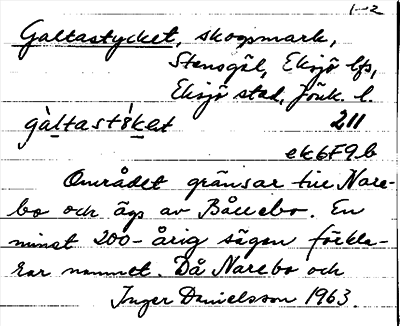 1-2
Galtastycket, skogsmark,
Stensgål, Eksjö lfs,
Eksjö stad, Jönk. l.
gàltast8̍ket 211
ek6F9b
Området gränsar till Nare-
bo och ägs av Bållebo. En
minst 200-årig sägen förkla-
rar namnet. Då Narebo och
Inger Danielsson 1963.